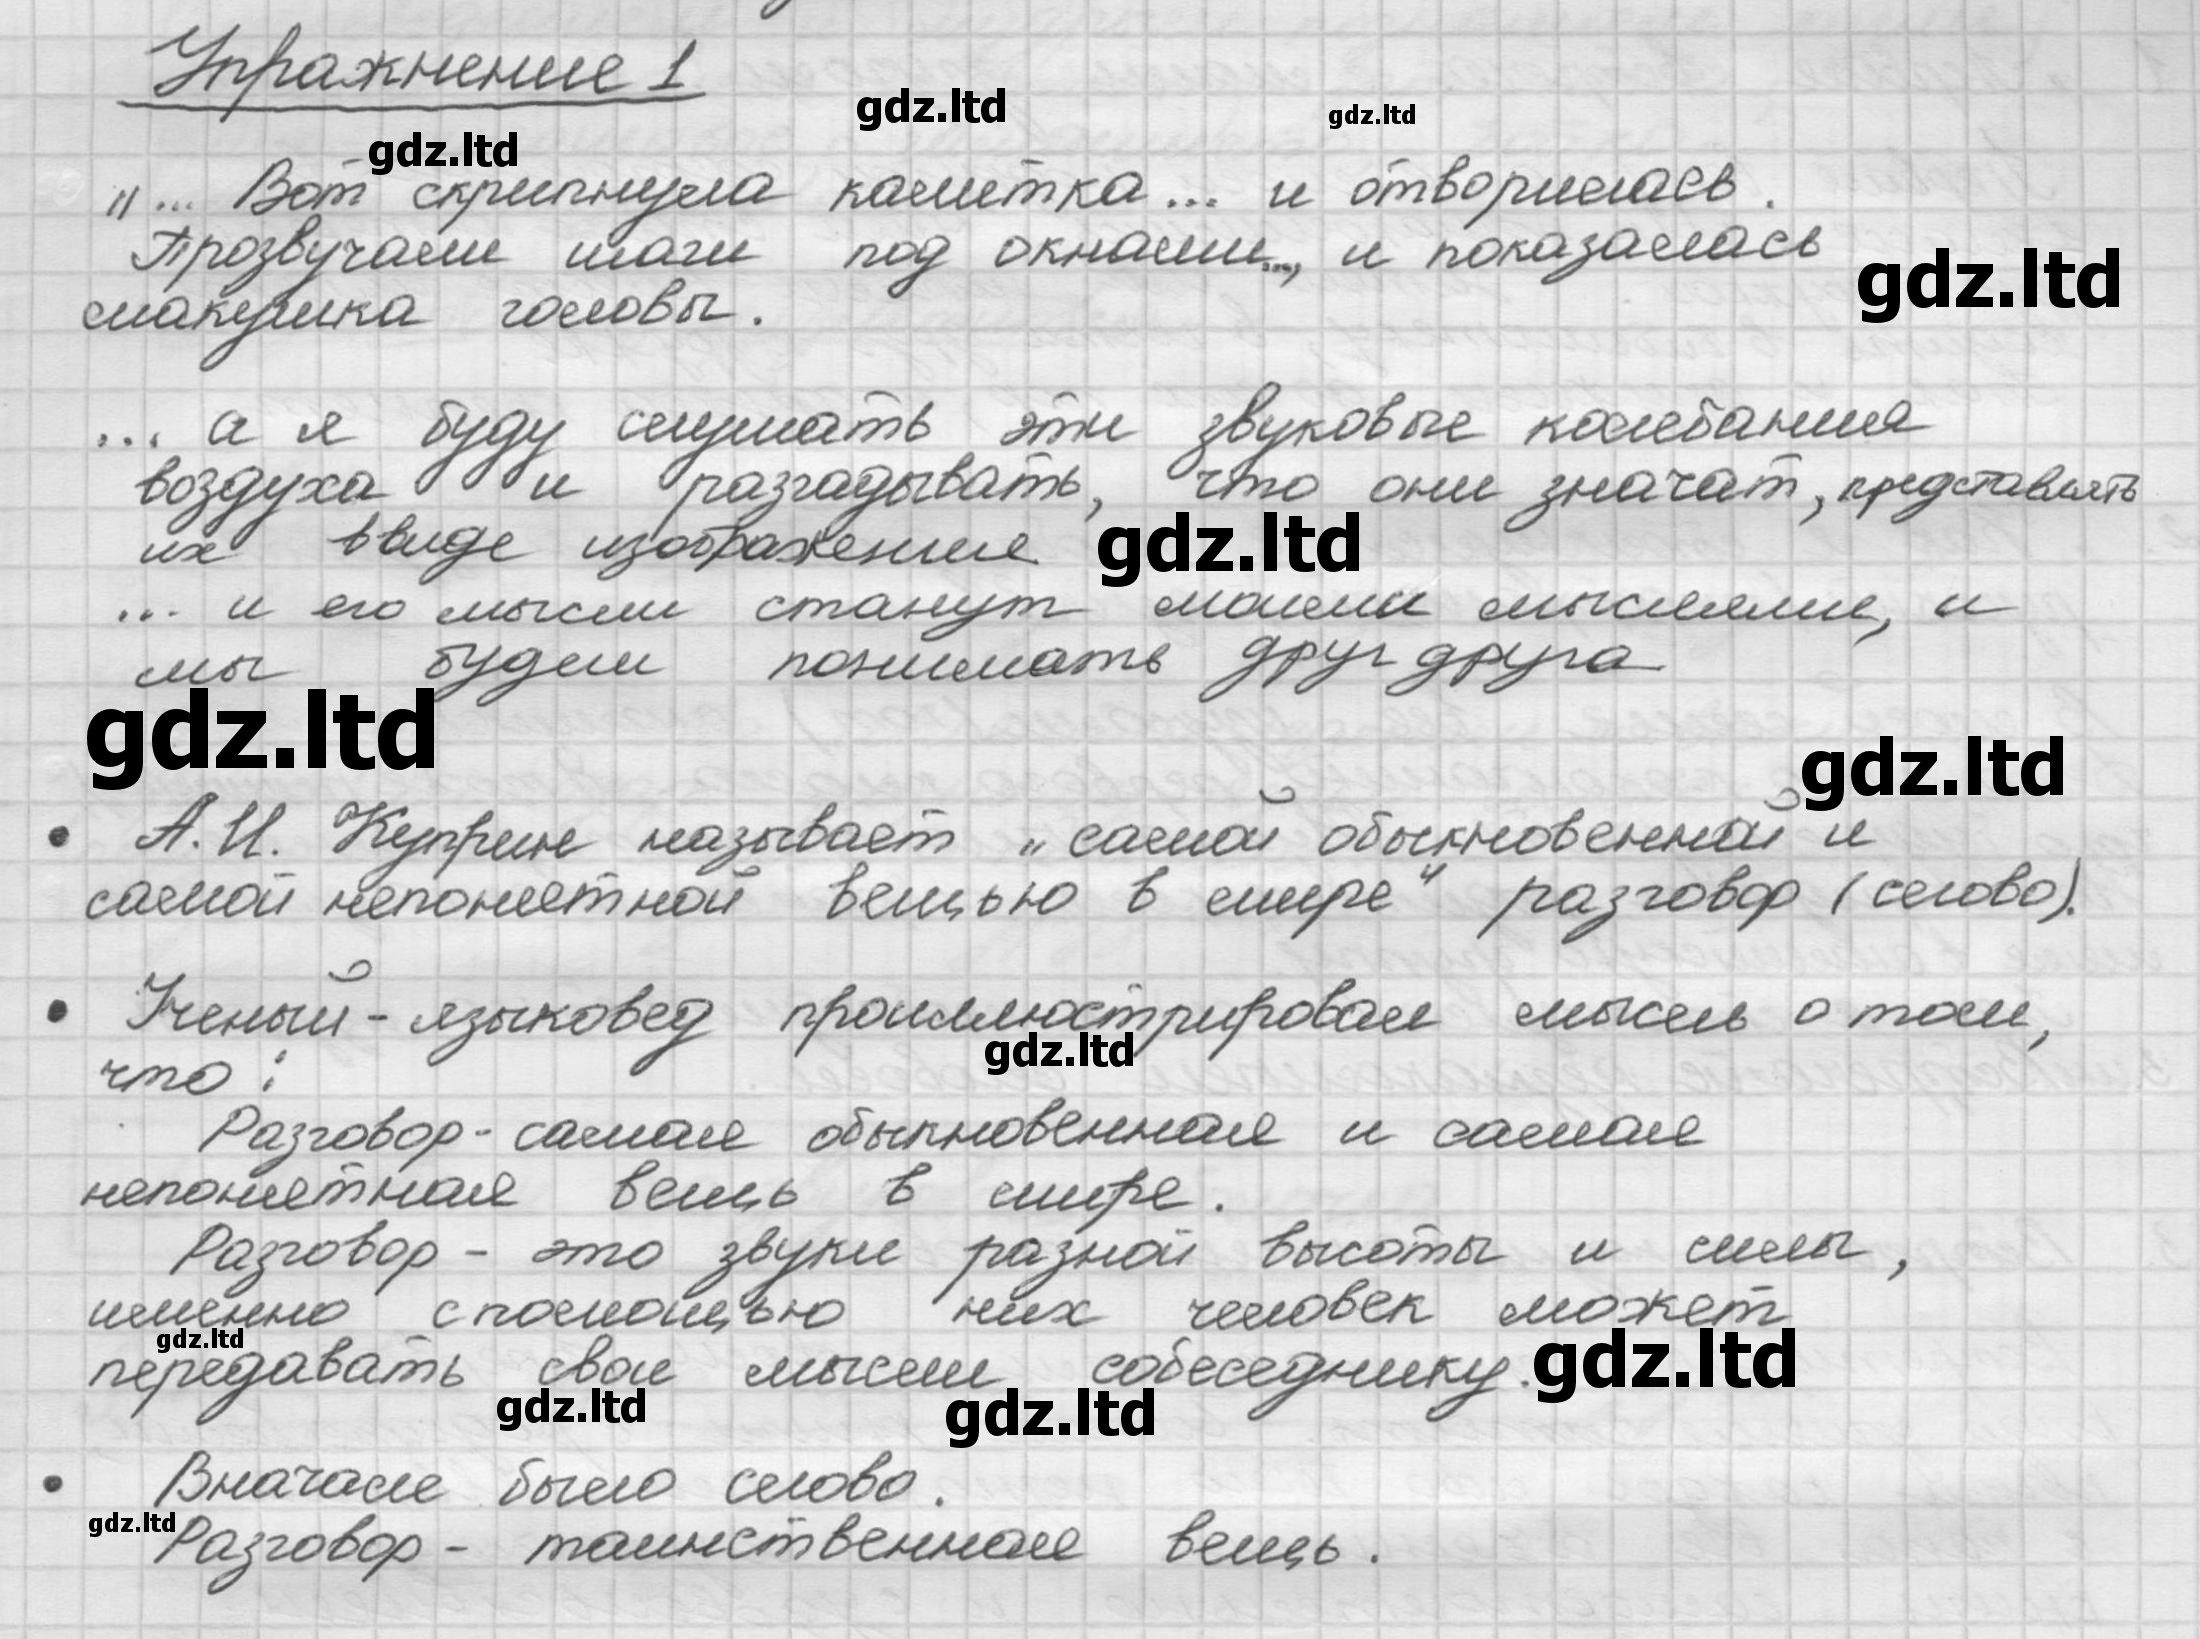 Упражнение 1
gdz.ltd
gdz.ltd
gdz.ltd
„... Вот скрипнула калитка... и отворилась.
Прозвучали шаги под окнами..., и показалась
gdz.ltd
макушка головы.
... а я буду слушать эти звуковые колебания
воздуха и разгадывать, что они значат, представлять
их в виде изображение
gdz.ltd
... и его мысли станут моими мыслями, и
мы будем понимать друг друга
gdz.ltd
gdz.ltd
• А.И. Куприн называет „самой обыкновенной и
самой непонятной вещью в мире“ разговор (слово).
• Ученый-языковед проиллюстрировал мысль о том,
gdz.ltd
что:
Разговор - самая обыкновенная и самая
непонятная вещь в мире.
Разговор - это звуки разной высоты и силы,
именно с помощью них человек может
gdz.ltd
передавать свои мысли собеседнику.
gdz.ltd
gdz.ltd
gdz.ltd
• Вначале было слово.
gdz.ltd
Разговор - таинственная вещь.